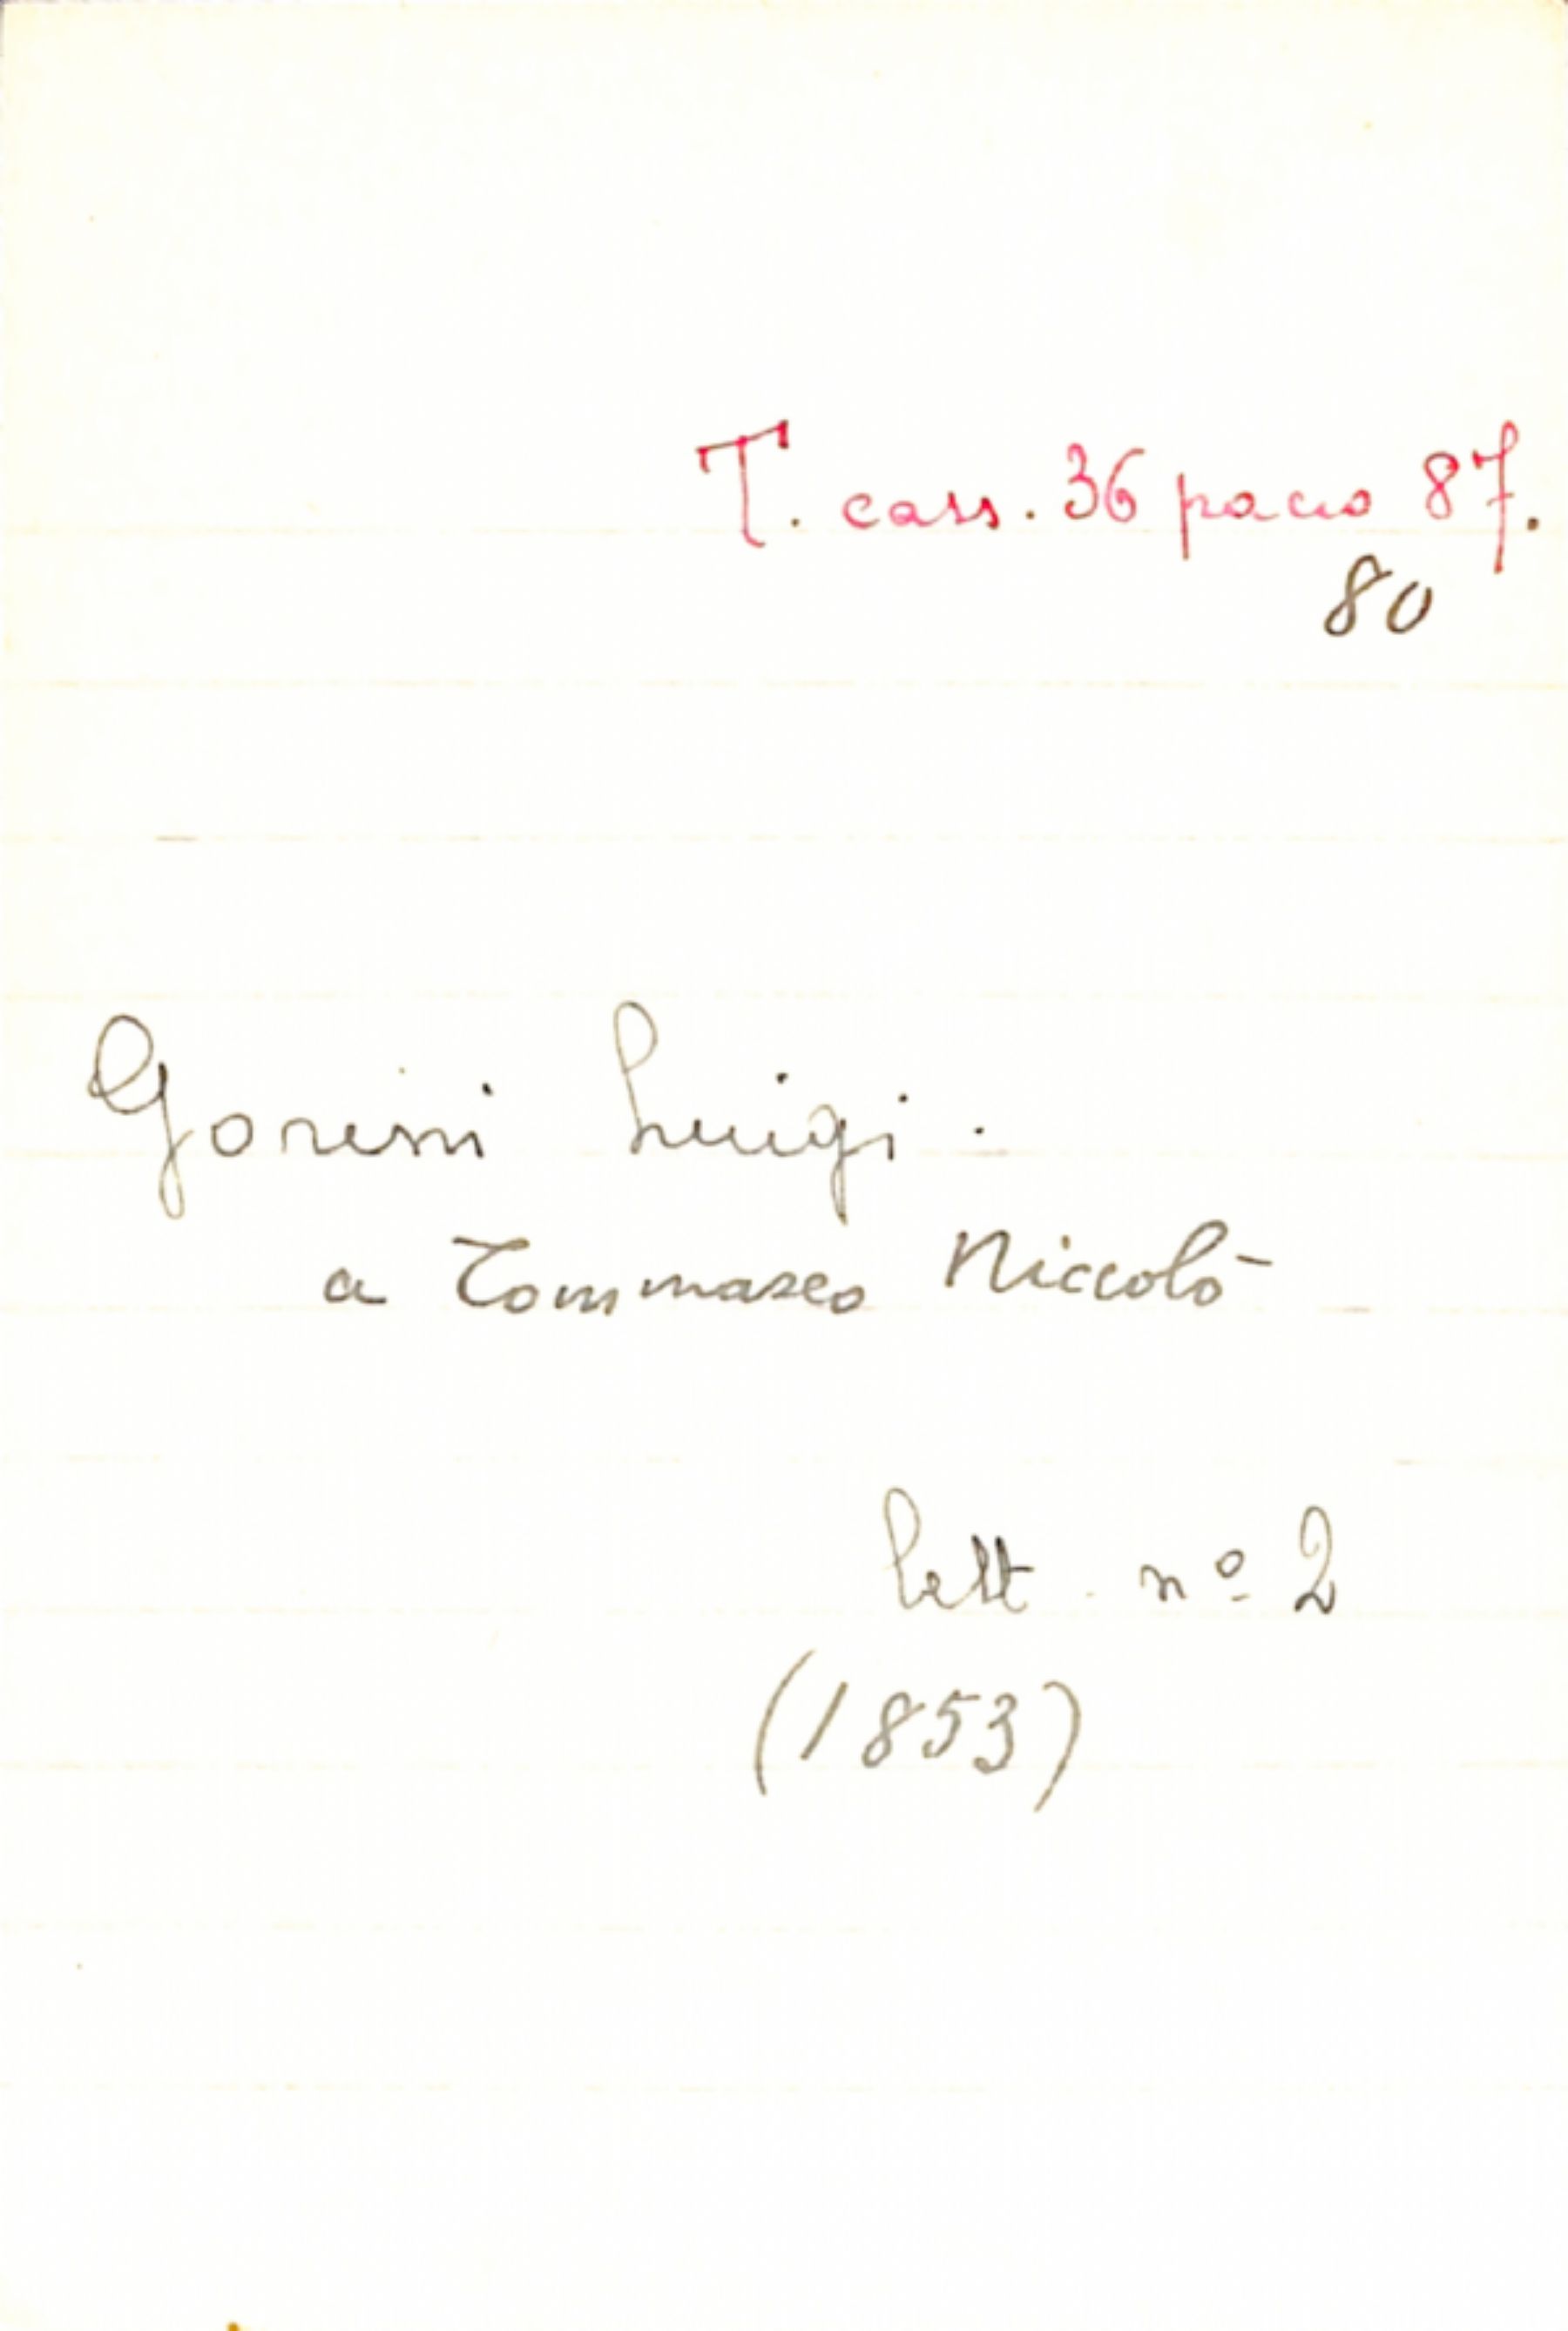 T. cass. 36 pacco 87.
80
Luigi.
a Tommaseo Niccolò
Lett. nº 2
(1853)